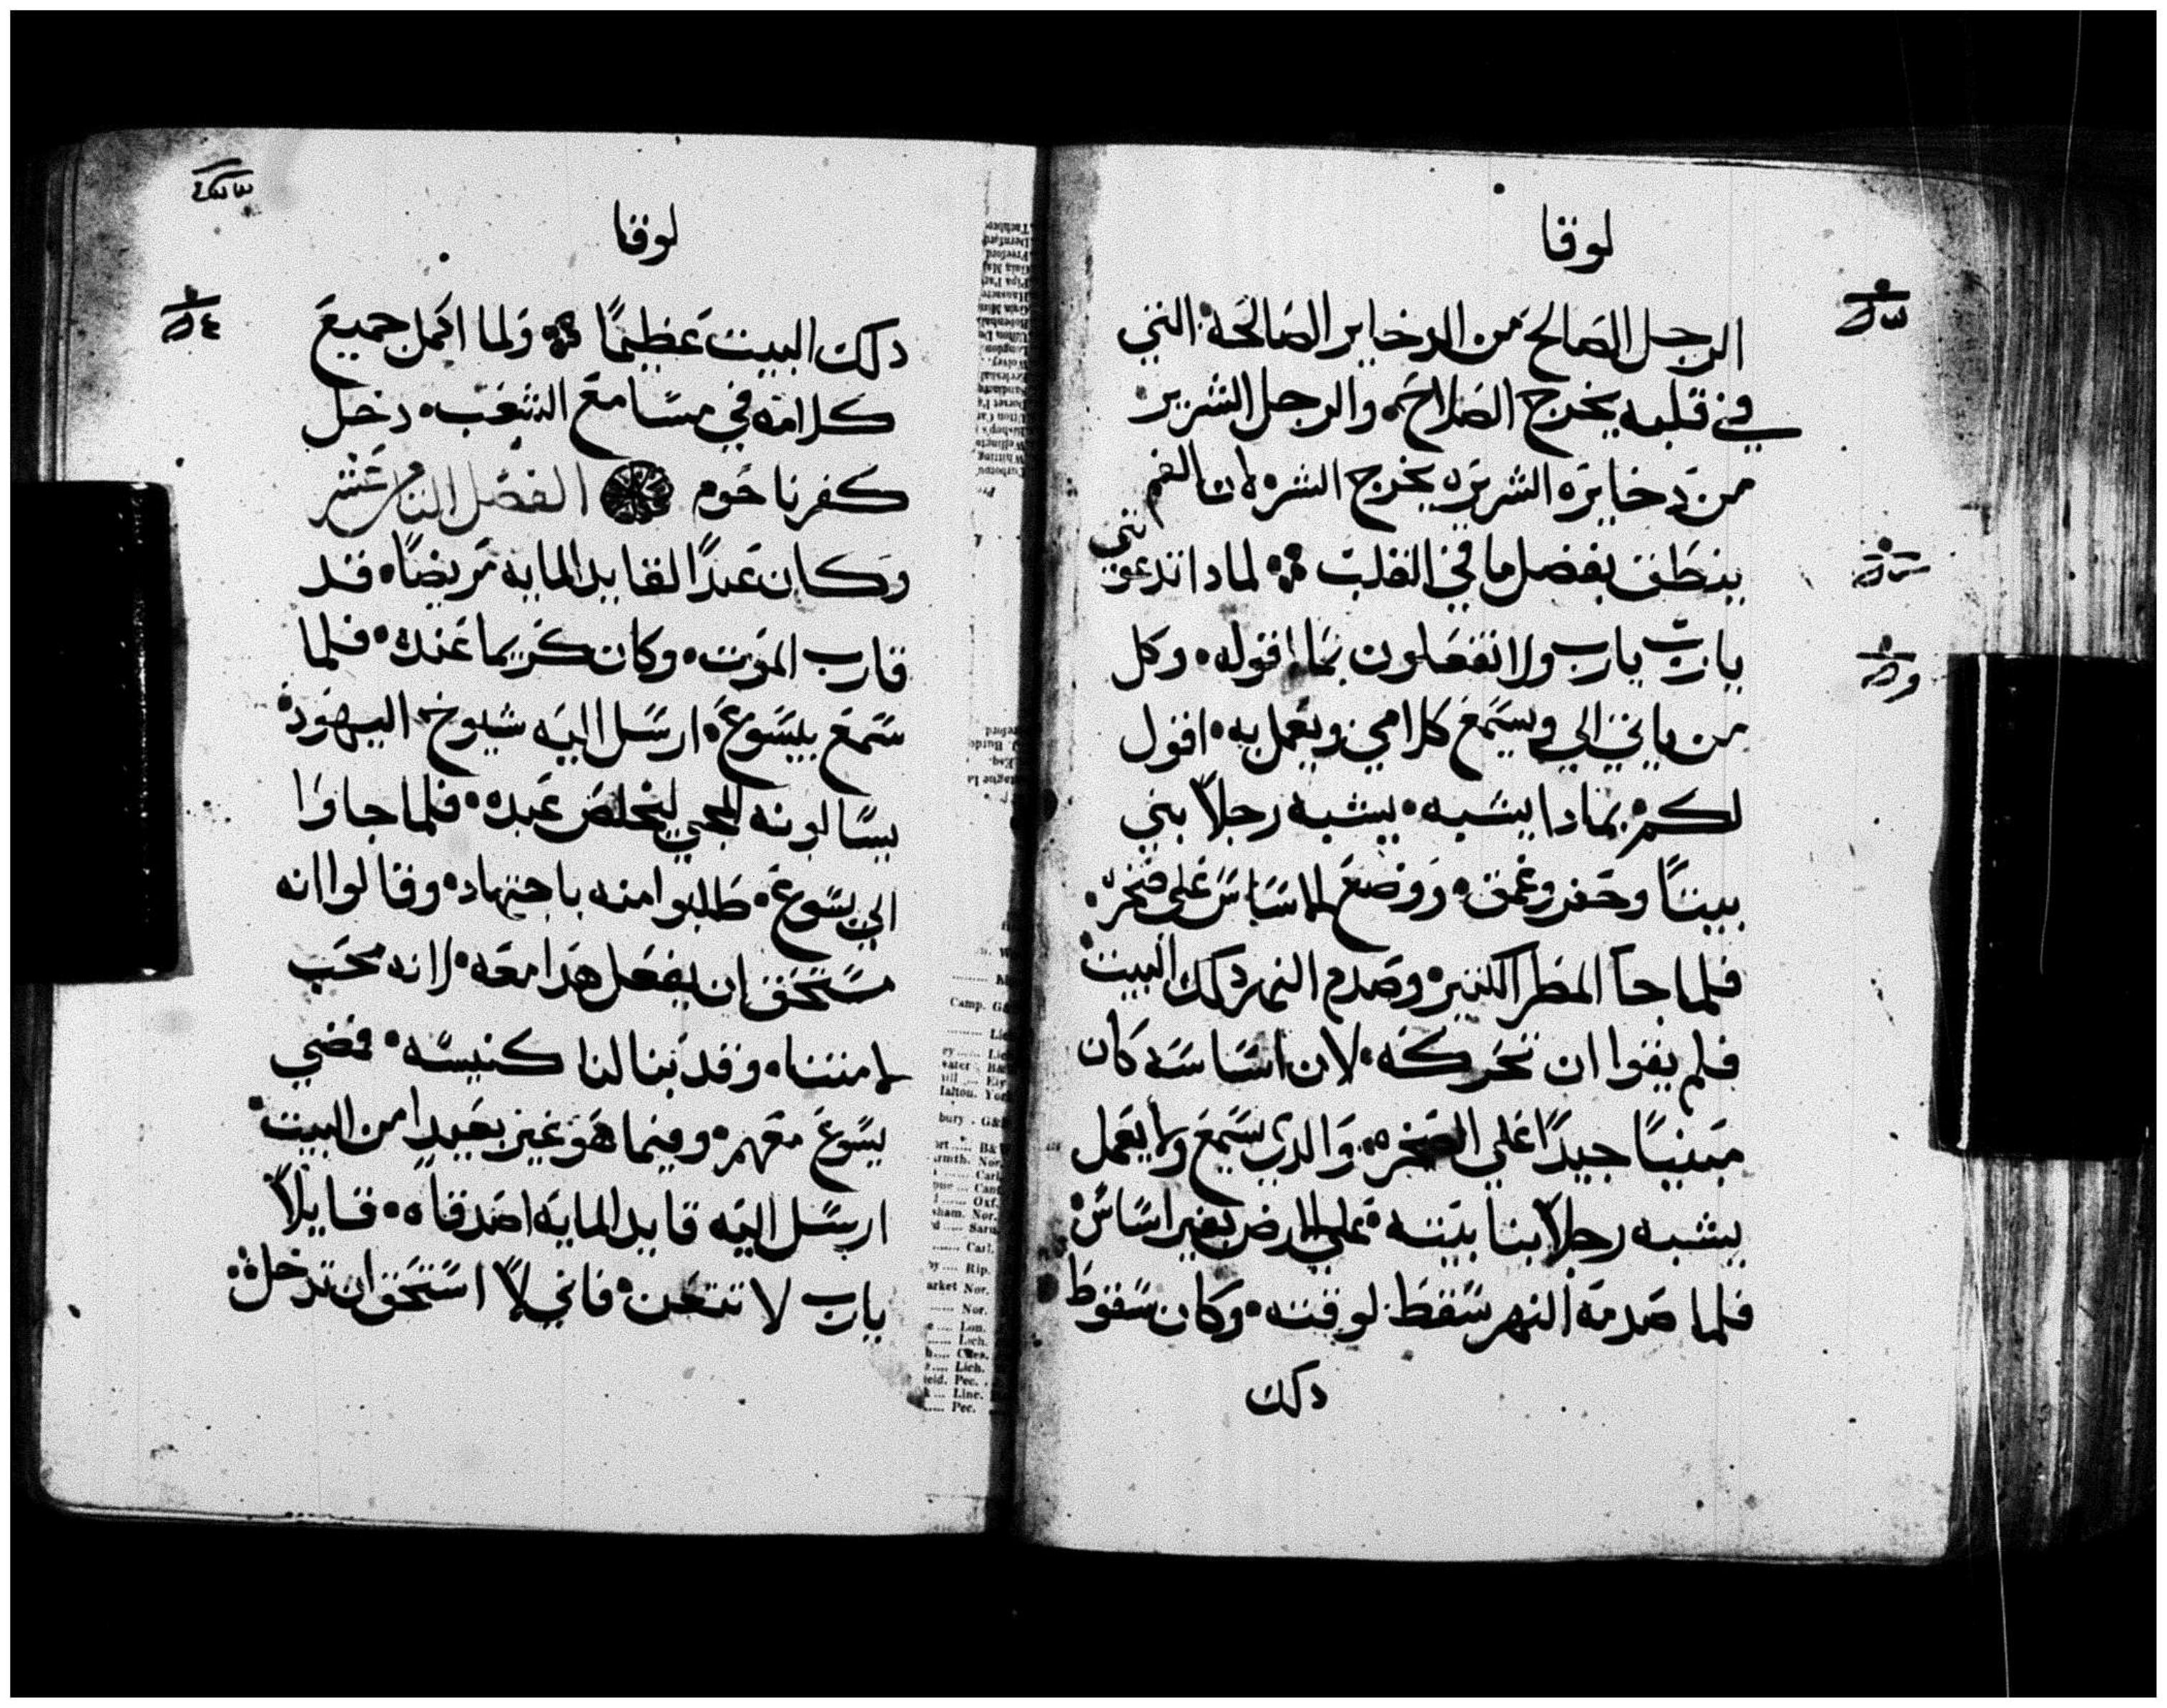 لوقا
الرجل الصالح من الدخاير الصالحه التي
في قلبه يخرج الصلاح والرجل الشرير
من دخايره الشريره يخرج الشر لان الفم
ينطق بفضل ما في القلب لمادا تدعونني
يارب يارب ولا تفعلون بما اقوله وكل
من ياتي الي ويسمع كلامي ويعمل به اقول
لكم بمادا يشبه يشبه رجلاً بني
بيتاً وحفر وعمق ووضع الاساس علي صخره
فلما جا المطر الكثير وصدم النهر دلك البيت
فلم يقوا ان تحركه لان اساسه كان
مبنياً جيداً علي الصخره والدي يسمع ولا يعمل
يشبه رجلاً بنا بيته علي الارض بغير اساس
فلما صدمه النهر سقط لوقته وكان سقوط
دلك
لوقا
دلك البيت عظيماً ولما اكمل جميع
كلامه في مسامع الشعب دخل
كفرناحوم الفصل الثامن عشر
وكان عبداً لقايد المايه مريضاً قد
قارب الموت وكان كريما عنده فلما
سمع بيسوع ارسل اليه شيوخ اليهود
يسالونه المجي ليخلص عبده فلما جاوا
الي يسوع طلبوا منه باجتهاد وقالوا انه
مستحق ان يفعل هدا معه لانه محب
لامتنا وقد بنا لنا كنيسه فمضي
يسوع معهم وفيما هو غير بعيدا من البيت
ارسل اليه قايد المايه اصدقاه قايلاً
يارب لا تتعن فاني لا استحق ان تدخل